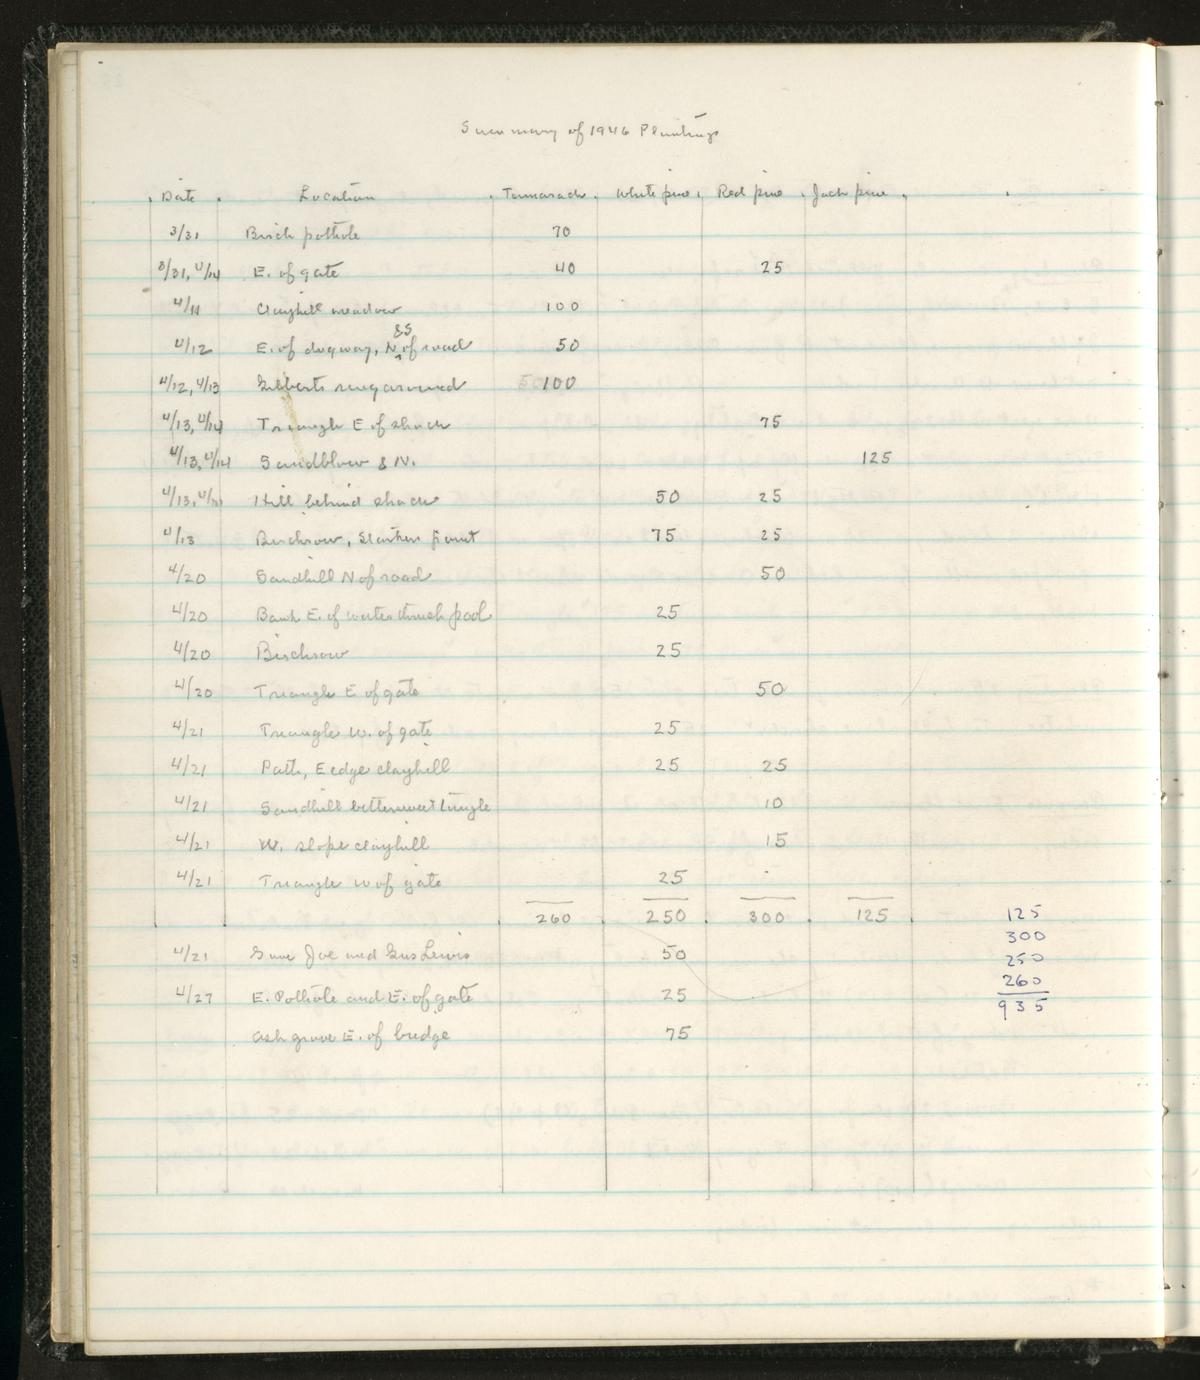 Summary of 1946 Plantings
Date Location Tamarack White pine Red pine Jack pine
3/31 Birch pothole 70
3/31, 4/14 E. of gate 40 25
4/11 Clayhill meadow 100
&S
4/12 E. of dugway, N of road 50
4/12, 4/13 Gilberts ringaround 100
4/13, 4/14 Triangle E of shack 75
4/13, 4/14 Sandblow & N. 125
4/13, Hill behind shack 50 25
4/13 Birchrow, point 75 25
4/20 Sandhill N of road 50
4/20 Bank E. of waterthrush pool 25
4/20 Birchrow 25
4/20 Triangle E of gate 50
4/21 Triangle W. of gate 25
4/21 Path, E edge clayhill 25 25
4/21 Sandhill bittersweet tingle 10
4/21 W. slope clayhill 15
4/21 Triangle W of gate 25
260 250 300 125
125
300
250
260
935
4/21 Gave Joe and Gus Lewis 50
4/27 E. Pothole and E. of gate 25
Ash grove E. of bridge 75